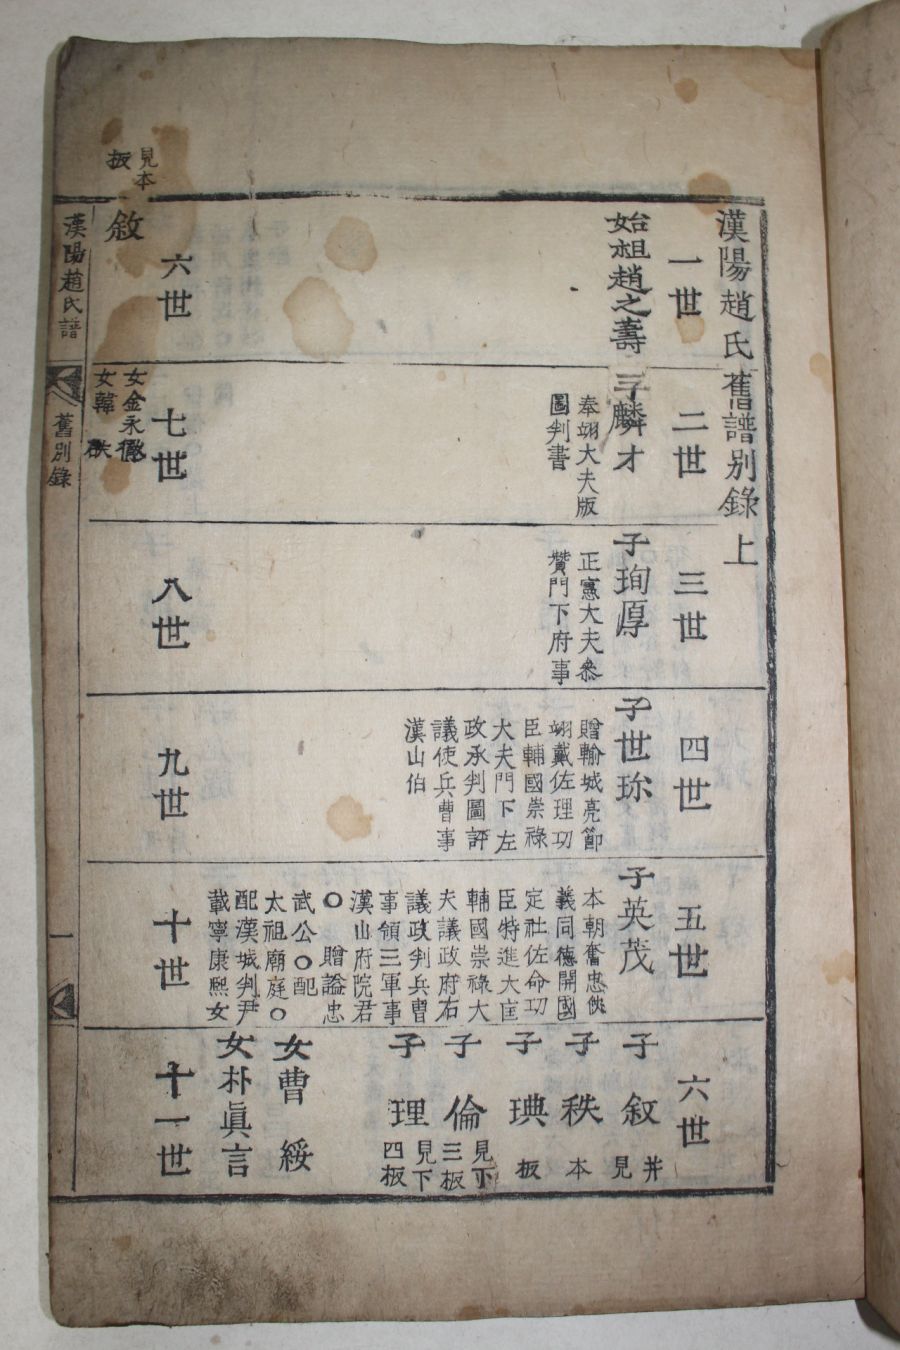 漢陽趙氏舊譜別錄 上
一世
始祖趙之壽
二世
子麟才
奉翊大夫版
圖判書
三世
子珣厚
正憲大夫叅
贊門下府事
四世
子世珎
贈輸城亮節
翊戴佐理功
臣輔國崇祿
大夫門下左
政承判圖評
議使兵曹事
漢山伯
五世
子英茂
本朝奮忠俠
義同德開國
定社佐命功
臣特進大匡
輔國崇祿大
夫議政府右
議政判兵曹
事領三軍事
漢山府院君
○ 贈謚忠
武公○配
太祖廟庭○
配漢城判尹
載寧康熙女
六世
子 敘
子 秩
子 琠
幷見本板
子 倫
見下三板
子 理
見下四板
女曹 綏
女朴眞言
六世
敘
見本板
七世
女金永
女韓
八世
九世
十世
十一世
漢陽趙氏譜 舊別錄 一